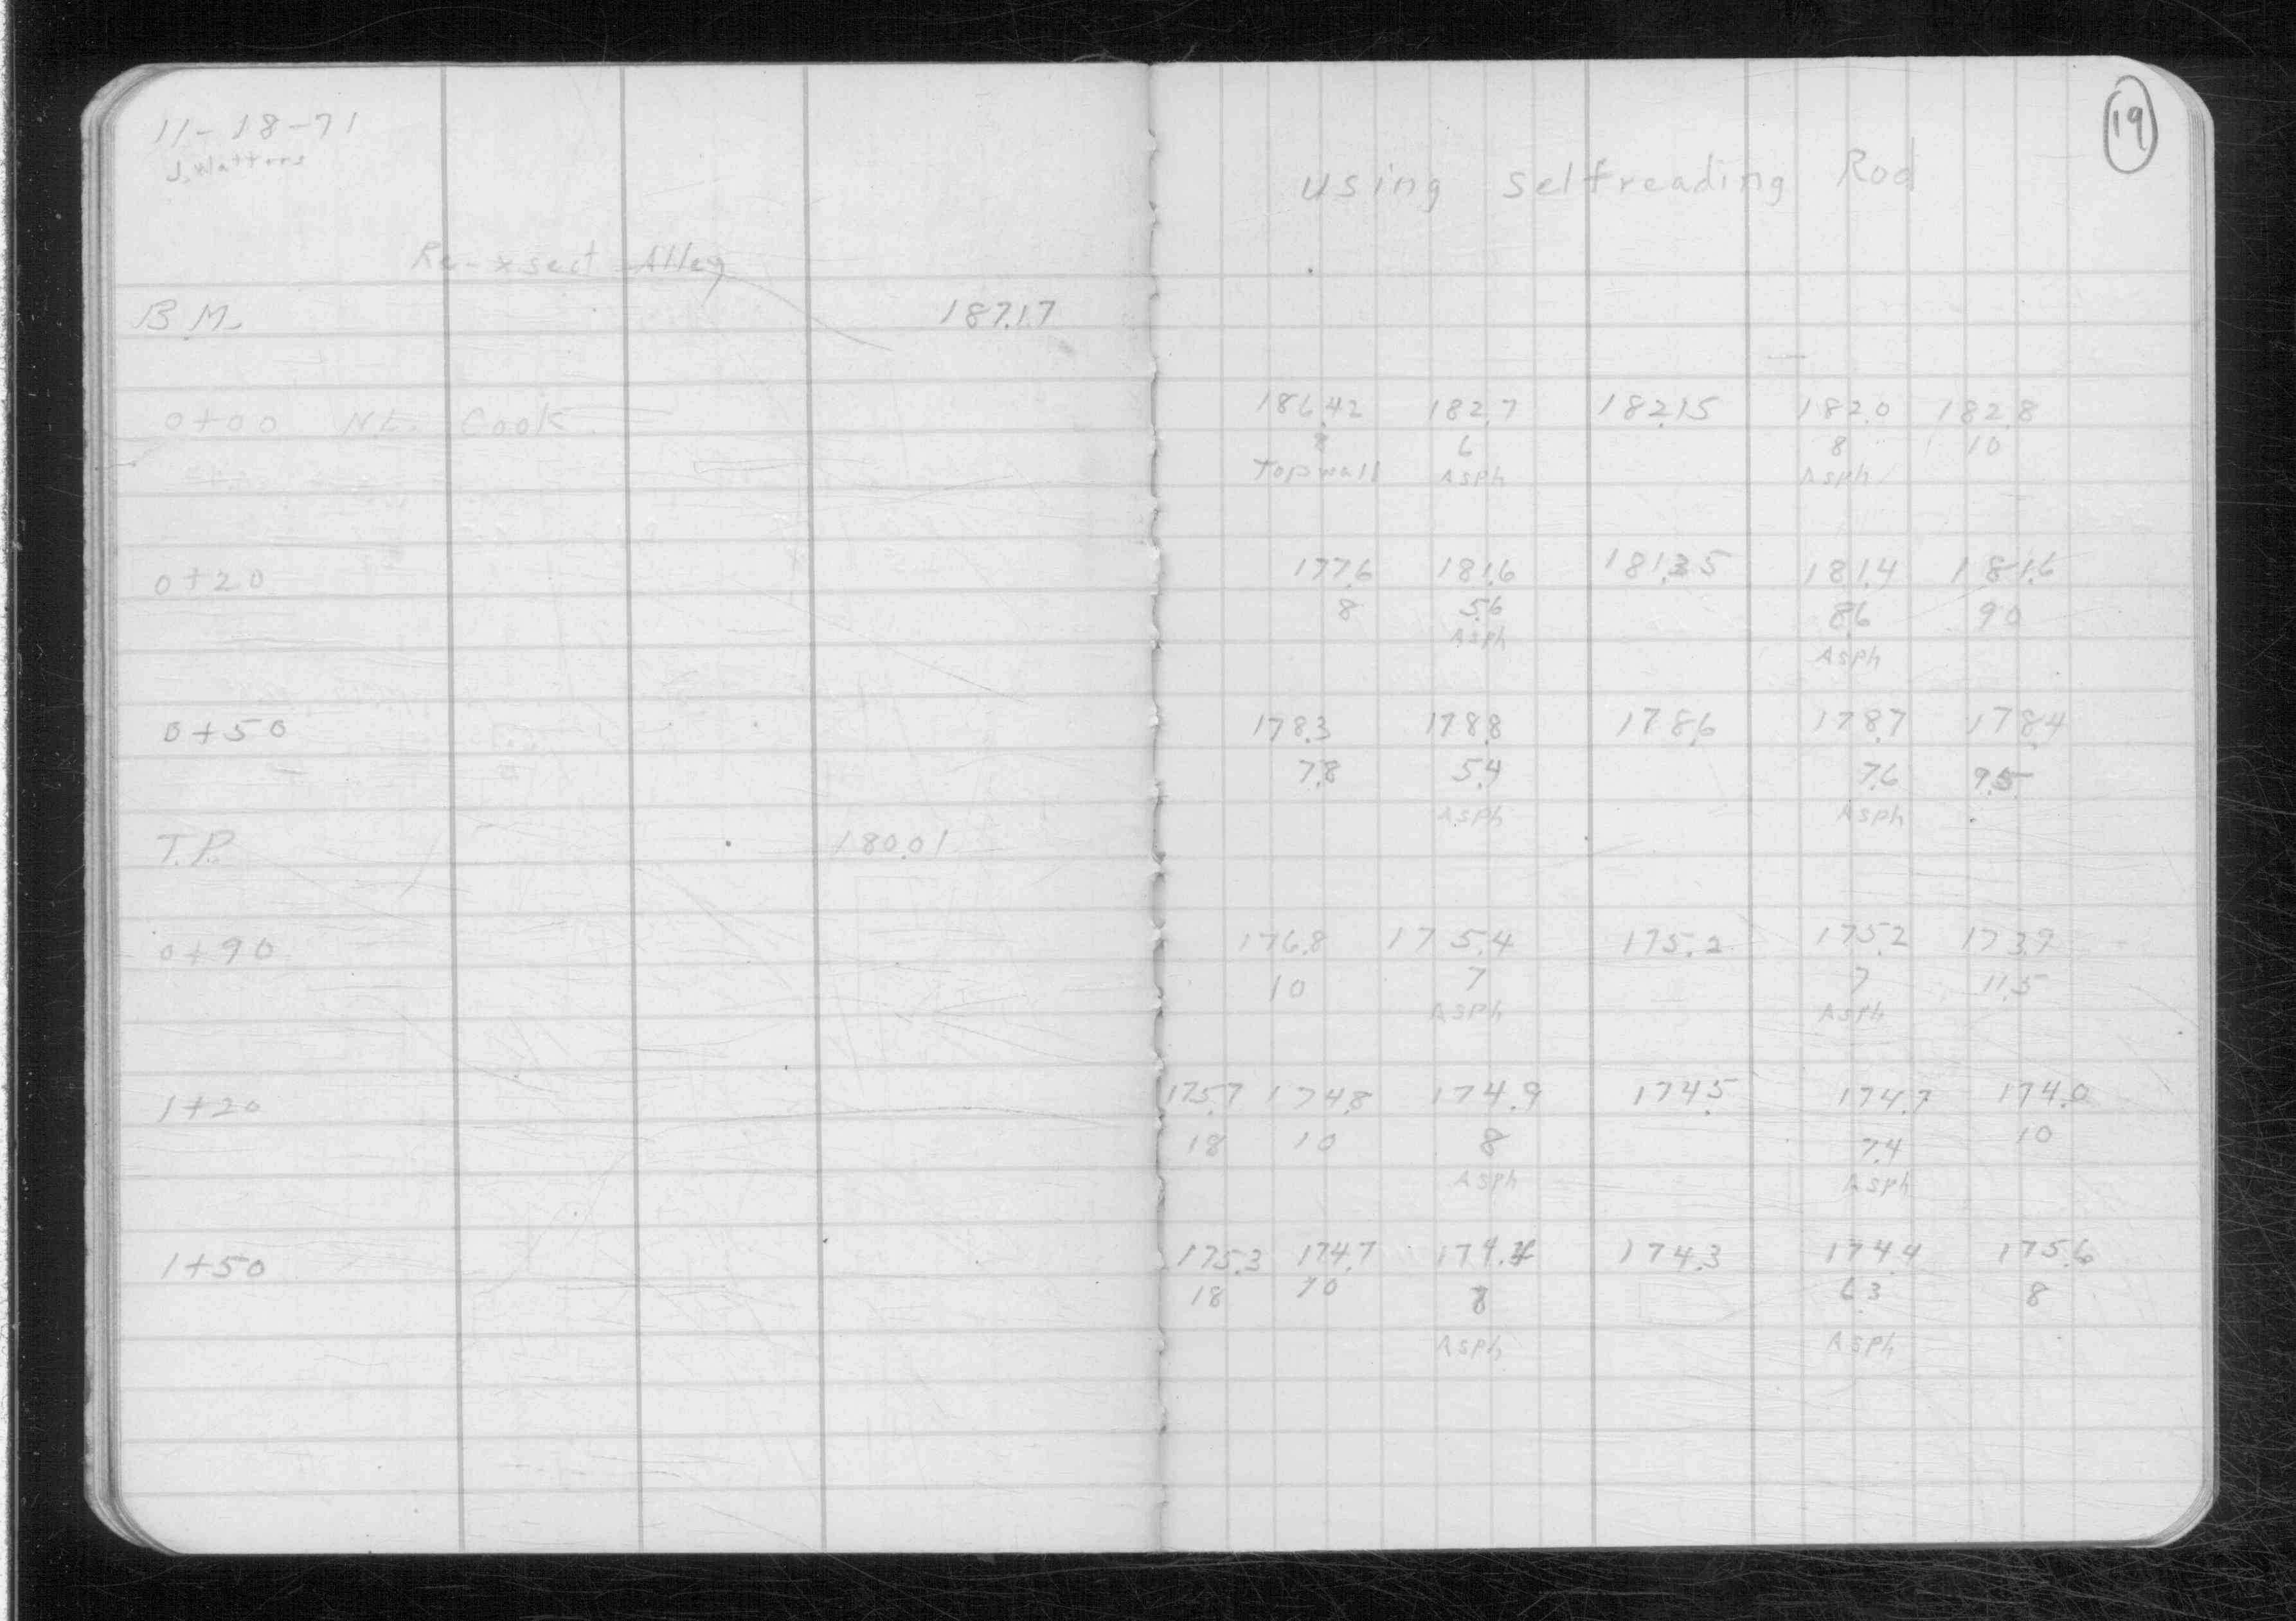 11-18-71
J. Watters
Re-xsect Alley
B M. 187.17
0+00 N.L. Cook
0+20
0+50
T.P. 180.01
0+90
1+20
1+50
19
using selfreading Rod
186.42 182.7 182.15 182.0 182.8
8 6 8 10
Topwall Asph Asph
177.6 181.6 181.35 181.4 181.6
8 5.6 8.6 90
Asph
Asph
178.3 178.8 178.6 178.7 178.4
7.8 5.4 7.6 9.5
Asph Asph
176.8 175.4 175.2 175.2 173.9
10 7 7 11.5
Asph Asph
175.7 174.8 174.9 174.5 174.7 174.0
18 10 8 7.4 10
Asph Asph
175.3 174.7 174.4 174.3 174.4 175.6
18 10 8 6.3 8
Asph Asph